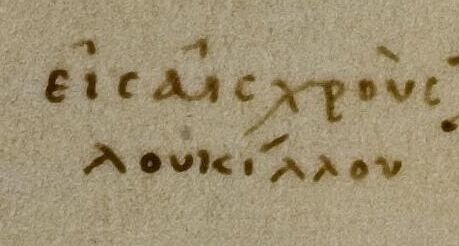 εἰς αἰσχροὺς
λουκίλλου